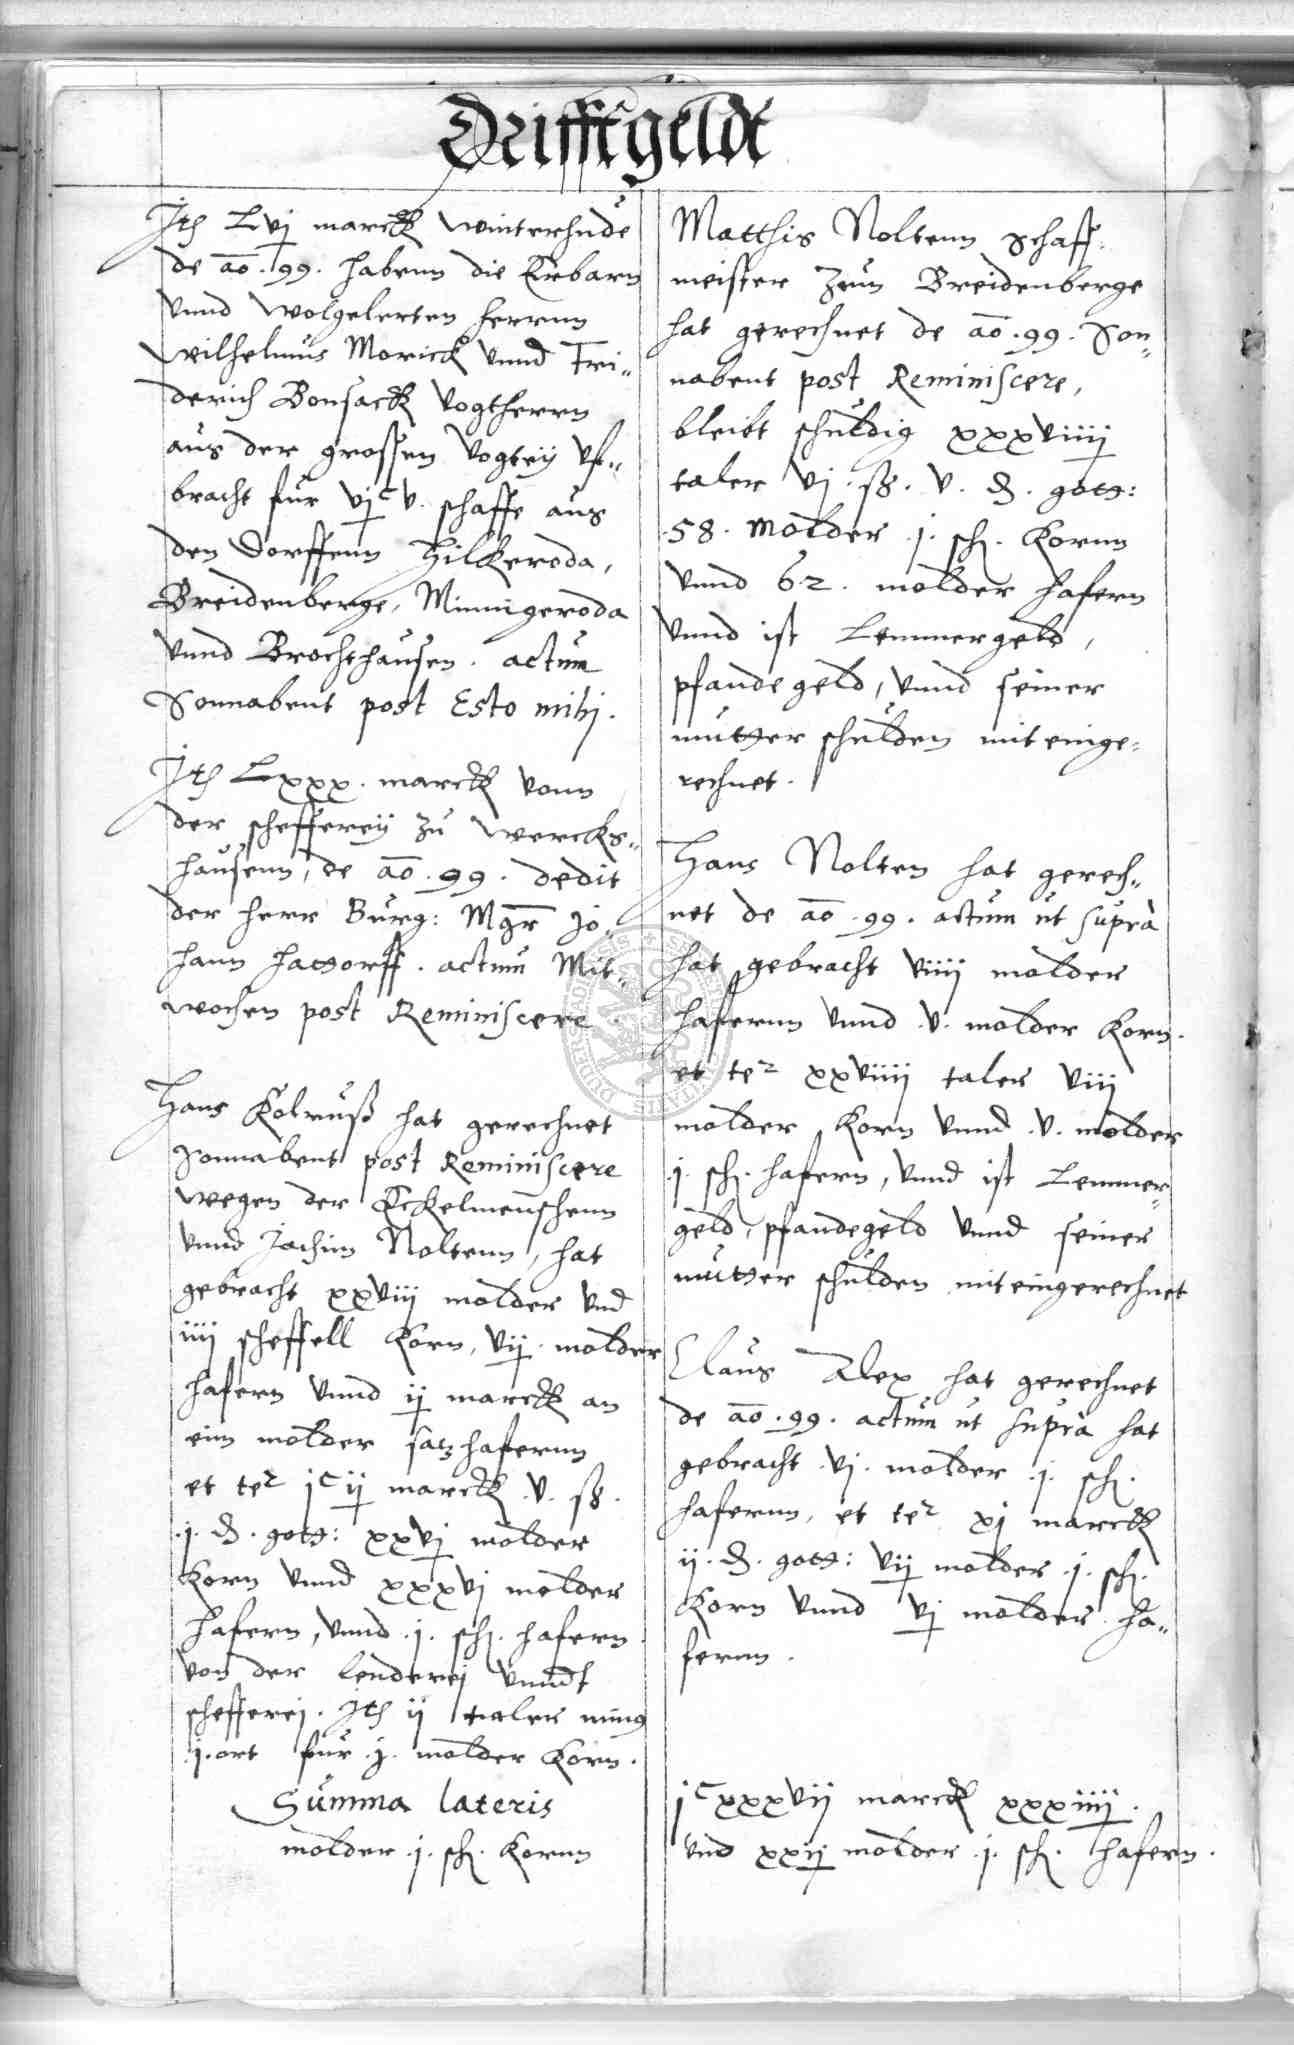 Drifftgeldt
Ith Lvj marck winterhude
de ao. 99. habenn die Erbarn
vnnd wolgelerten herrnn
Wilhelmus Morick vnnd Fri„
derich Bonsack vogtherrn
aus der grossen vogtey vf„
bracht fur vjc v. schaffe aus
den dorffenn Hilkeroda,
Breidenberge, Minnigeroda
vnnd Brochthausen. actum
Sonnabent post Esto mihj.
Ith Lxxx. marck vonn
der schefferey zu wercks„
hausenn, de ao. 99. dedit
der herr Burg: Mgr Jo„
hann Hattorff. actum Mit„
wochen post Reminiscere.
Hans Kolruß hat gerechnet
Sonnabent post Reminiscere
wegen der Eckelmenschenn
vnnd Jochim Noltenn, hat
gebracht xxviij molder vnd
iiij scheffell Korn, vij. molder
hafern vnnd ij marck an
eim molder satzhafernn
et ter jc ij marck .v. ß.
.j. d. gott: xxvj molder
Korn vnnd xxxvj molder
hafern, vnnd .j. sch. hafern.
von der lenderej vnndt
schefferej. Ith ij taler minus
.j. ort fur .j. molder Korn.
Summa lateris
molder .j. sch. Kornn
Matthis Noltenn Schaff„
meister zum Breidenberge
hat gerechnet de ao. 99. Son„
nabent post Reminiscere,
bleibt schuldig xxxviiij
taler vj. ß. v. d. gott:
.58. Molder .j. sch. Kornn
vnnd 62. molder hafern
vnnd ist Lemmergeld,
pfandegeld, vnnd seiner
mutter schulden mit einge„
rechnet.
Hans Nolten hat gerech„
net de ao. 99. actum ut supra
hat gebracht viiij molder
hafernn vnnd .v. molder Korn.
et ter xxviiij taler viij
molder Korn vnnd .v. molder
.j. sch. hafern, vnnd ist Lemmer„
geld, pfandegeld vnnd seiner
mutter schulden mit eingerechnet
Claus Alex hat gerechnet
de ao. 99. actum ut supra hat
gebracht .vj. molder .j. sch.
hafernn, et ter xj marck
ij. d. gott: vij molder .j. sch.
Korn vnnd vj molder ha„
fernn.
jc xxxvij marck xxxiiij.
vnd xxij molder .j. sch. hafern.